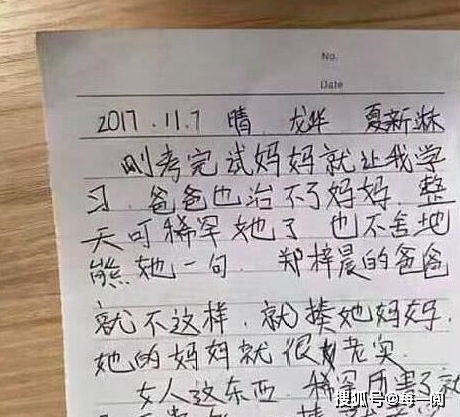 No.
Date
2017.11.7 晴 龙华 夏新淋
刚考完试妈妈就让我学
习.爸爸也治不了妈妈.整
天可稀罕她了 也不舍地
熊她一句. 郑梓晨的爸爸
就不这样.就揍她妈妈.
她的妈妈就很老实.
女人这东西.稀罕厉害了就
搜狐号@每一阅